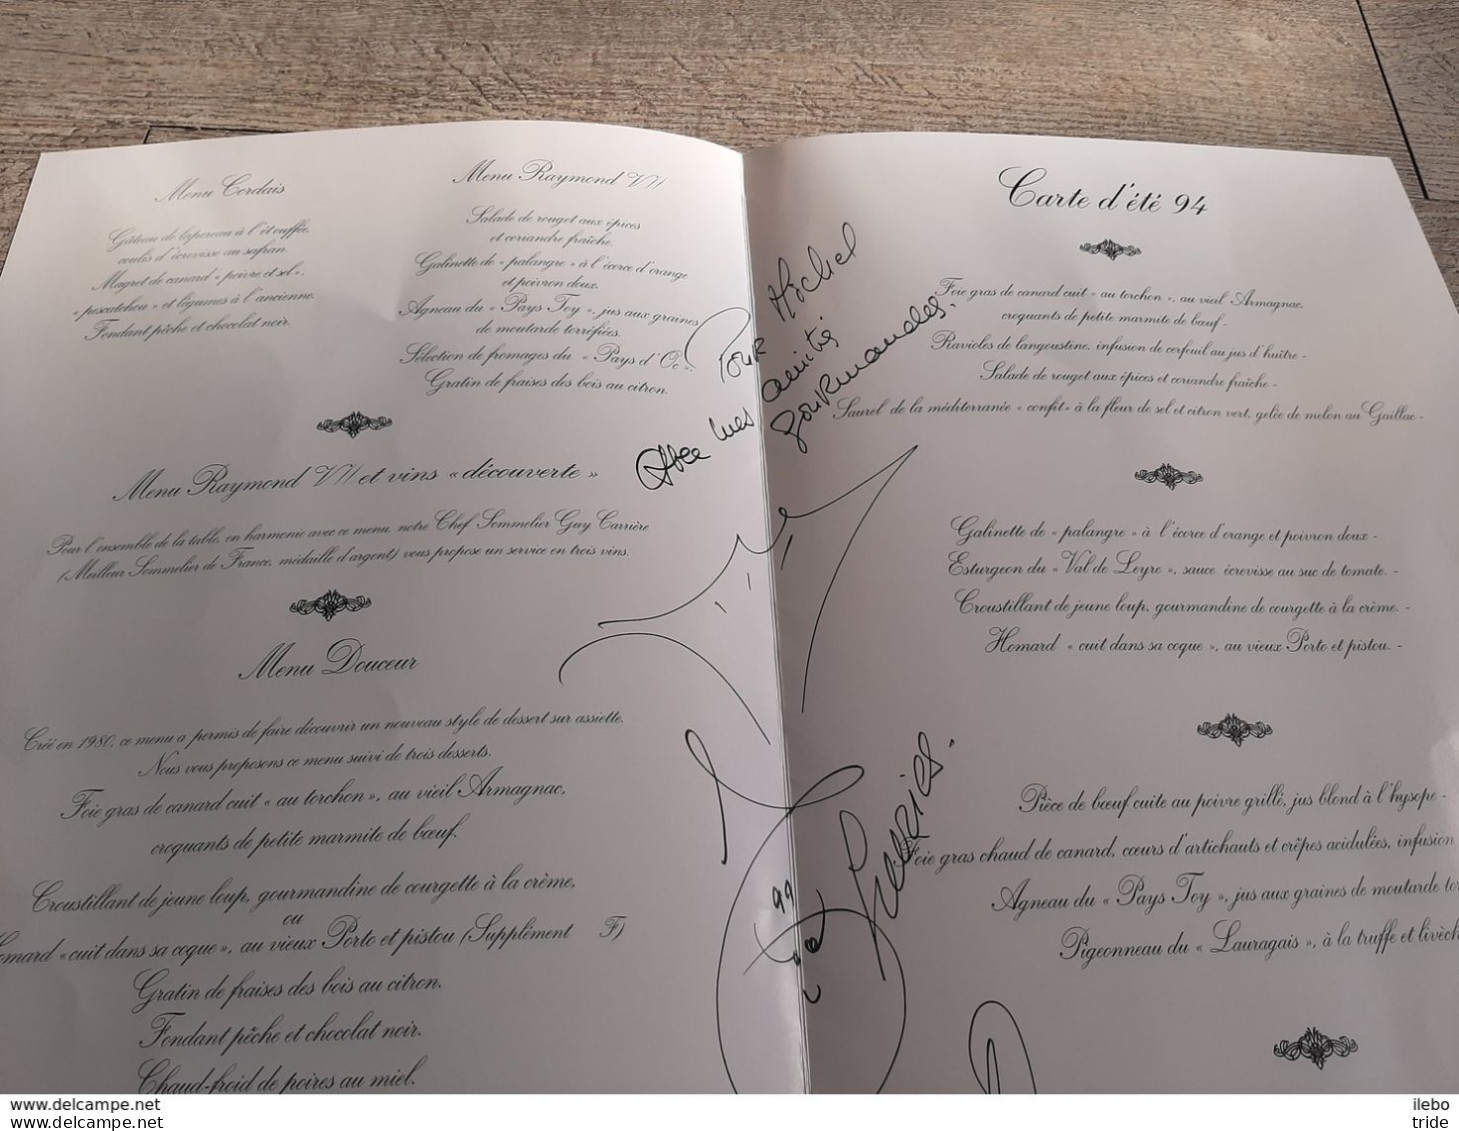 Menu Cordais
Gâteau de lapereau à l'étouffée,
coulis d'écrevisse au safran.
Magret de canard « poivre et sel »,
« pescatchou » et légumes à l'ancienne.
Fondant pêche et chocolat noir.
Menu Raymond VII
Salade de rouget aux épices
et coriandre fraîche.
Galinette de « palangre » à l'écorce d'orange
et poivron doux.
Agneau du « Pays Toy », jus aux graines
de moutarde torréfiées.
Sélection de fromages du « Pays d'Oc ».
Gratin de fraises des bois au citron.
Menu Raymond VII et vins « découverte »
Pour l'ensemble de la table, en harmonie avec ce menu, notre Chef Sommelier Guy Carrière
(Meilleur Sommelier de France, médaille d'argent) vous propose un service en trois vins.
Menu Douceur
Créé en 1980, ce menu a permis de faire découvrir un nouveau style de dessert sur assiette.
Nous vous proposons ce menu suivi de trois desserts.
Foie gras de canard cuit « au torchon », au vieil Armagnac,
croquants de petite marmite de bœuf.
Croustillant de jeune loup, gourmandine de courgette à la crème,
ou
omard « cuit dans sa coque », au vieux Porto et pistou (Supplément F)
Gratin de fraises des bois au citron.
Fondant pêche et chocolat noir.
Chaud-froid de poires au miel.
Pour Michel
Avec mes amitiés
gourmandes.
Carte d'été 94
Foie gras de canard cuit « au torchon », au vieil Armagnac,
croquants de petite marmite de bœuf -
Ravioles de langoustine, infusion de cerfeuil au jus d'huître -
Salade de rouget aux épices et coriandre fraîche -
Saurel de la méditerranée « confit » à la fleur de sel et citron vert, gelée de melon au Gaillac -
Galinette de « palangre » à l'écorce d'orange et poivron doux -
Esturgeon du « Val de Leyre », sauce écrevisse au suc de tomate. -
Croustillant de jeune loup, gourmandine de courgette à la crème. -
Homard « cuit dans sa coque », au vieux Porto et pistou. -
Pièce de bœuf cuite au poivre grillé, jus blond à l'hysope -
Foie gras chaud de canard, cœurs d'artichauts et crêpes acidulées, infusion
Agneau du « Pays Toy », jus aux graines de moutarde tor
Pigeonneau du « Lauragais », à la truffe et livèch
ilebo
tride
www.delcampe.net
www.delcampe.net